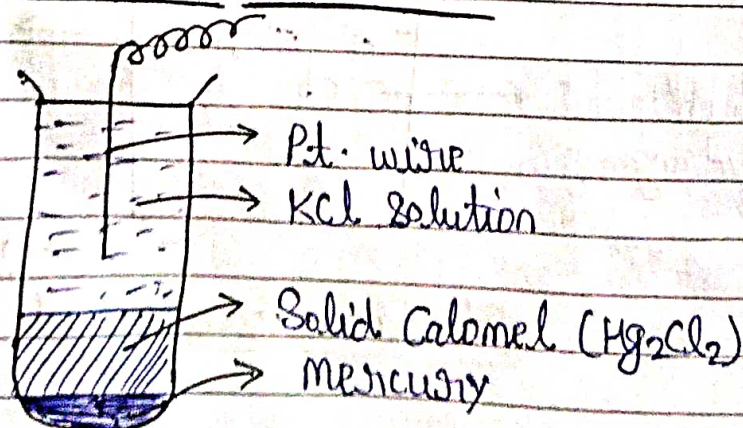 Pt. wire
KCl Solution
Solid Calomel (Hg₂Cl₂)
Mercury